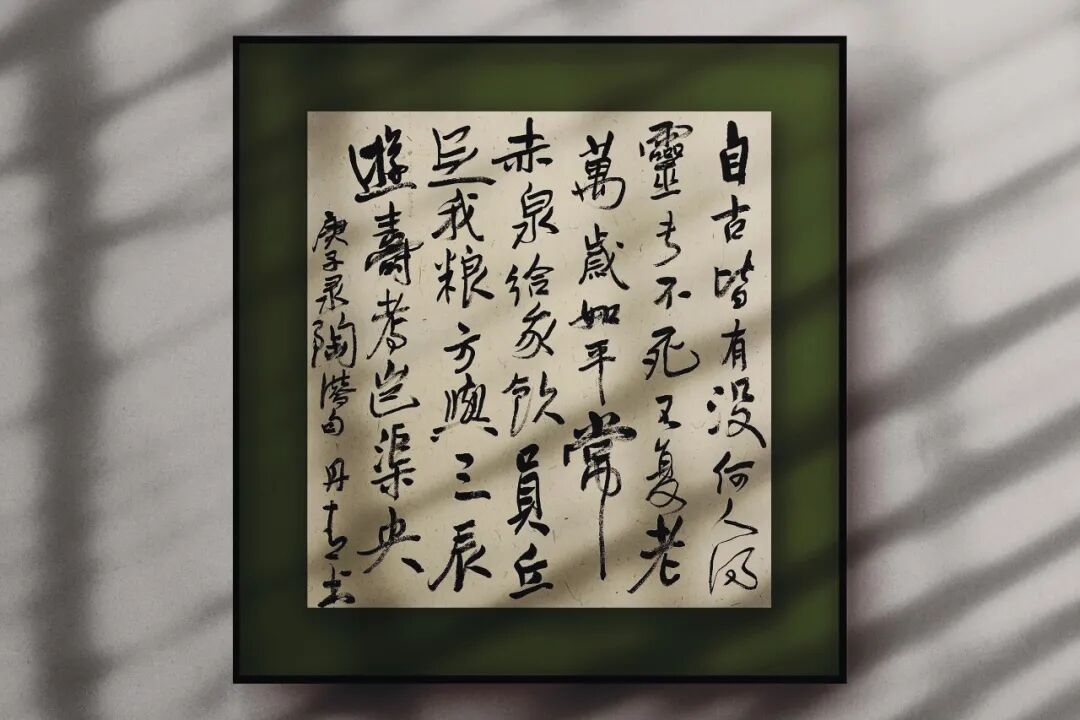 自古皆有没何人得
靈长不死不复老
萬歲如平常
赤泉给我飲員丘
足我粮方與三辰
遊壽考岂渠央
庚子录陶潜句丹青书